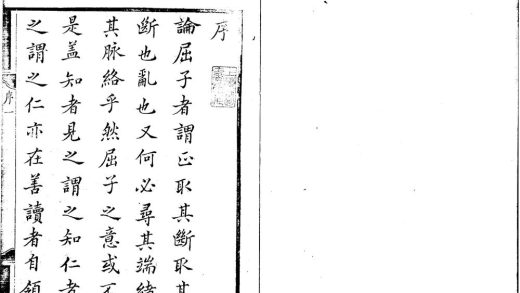 序
論屈子者謂正取其斷取其
斷也亂也又何必尋其端緒
其脉絡乎然屈子之意或不
是盖知者見之謂之知仁者
之謂之仁亦在善讀者自領
序一